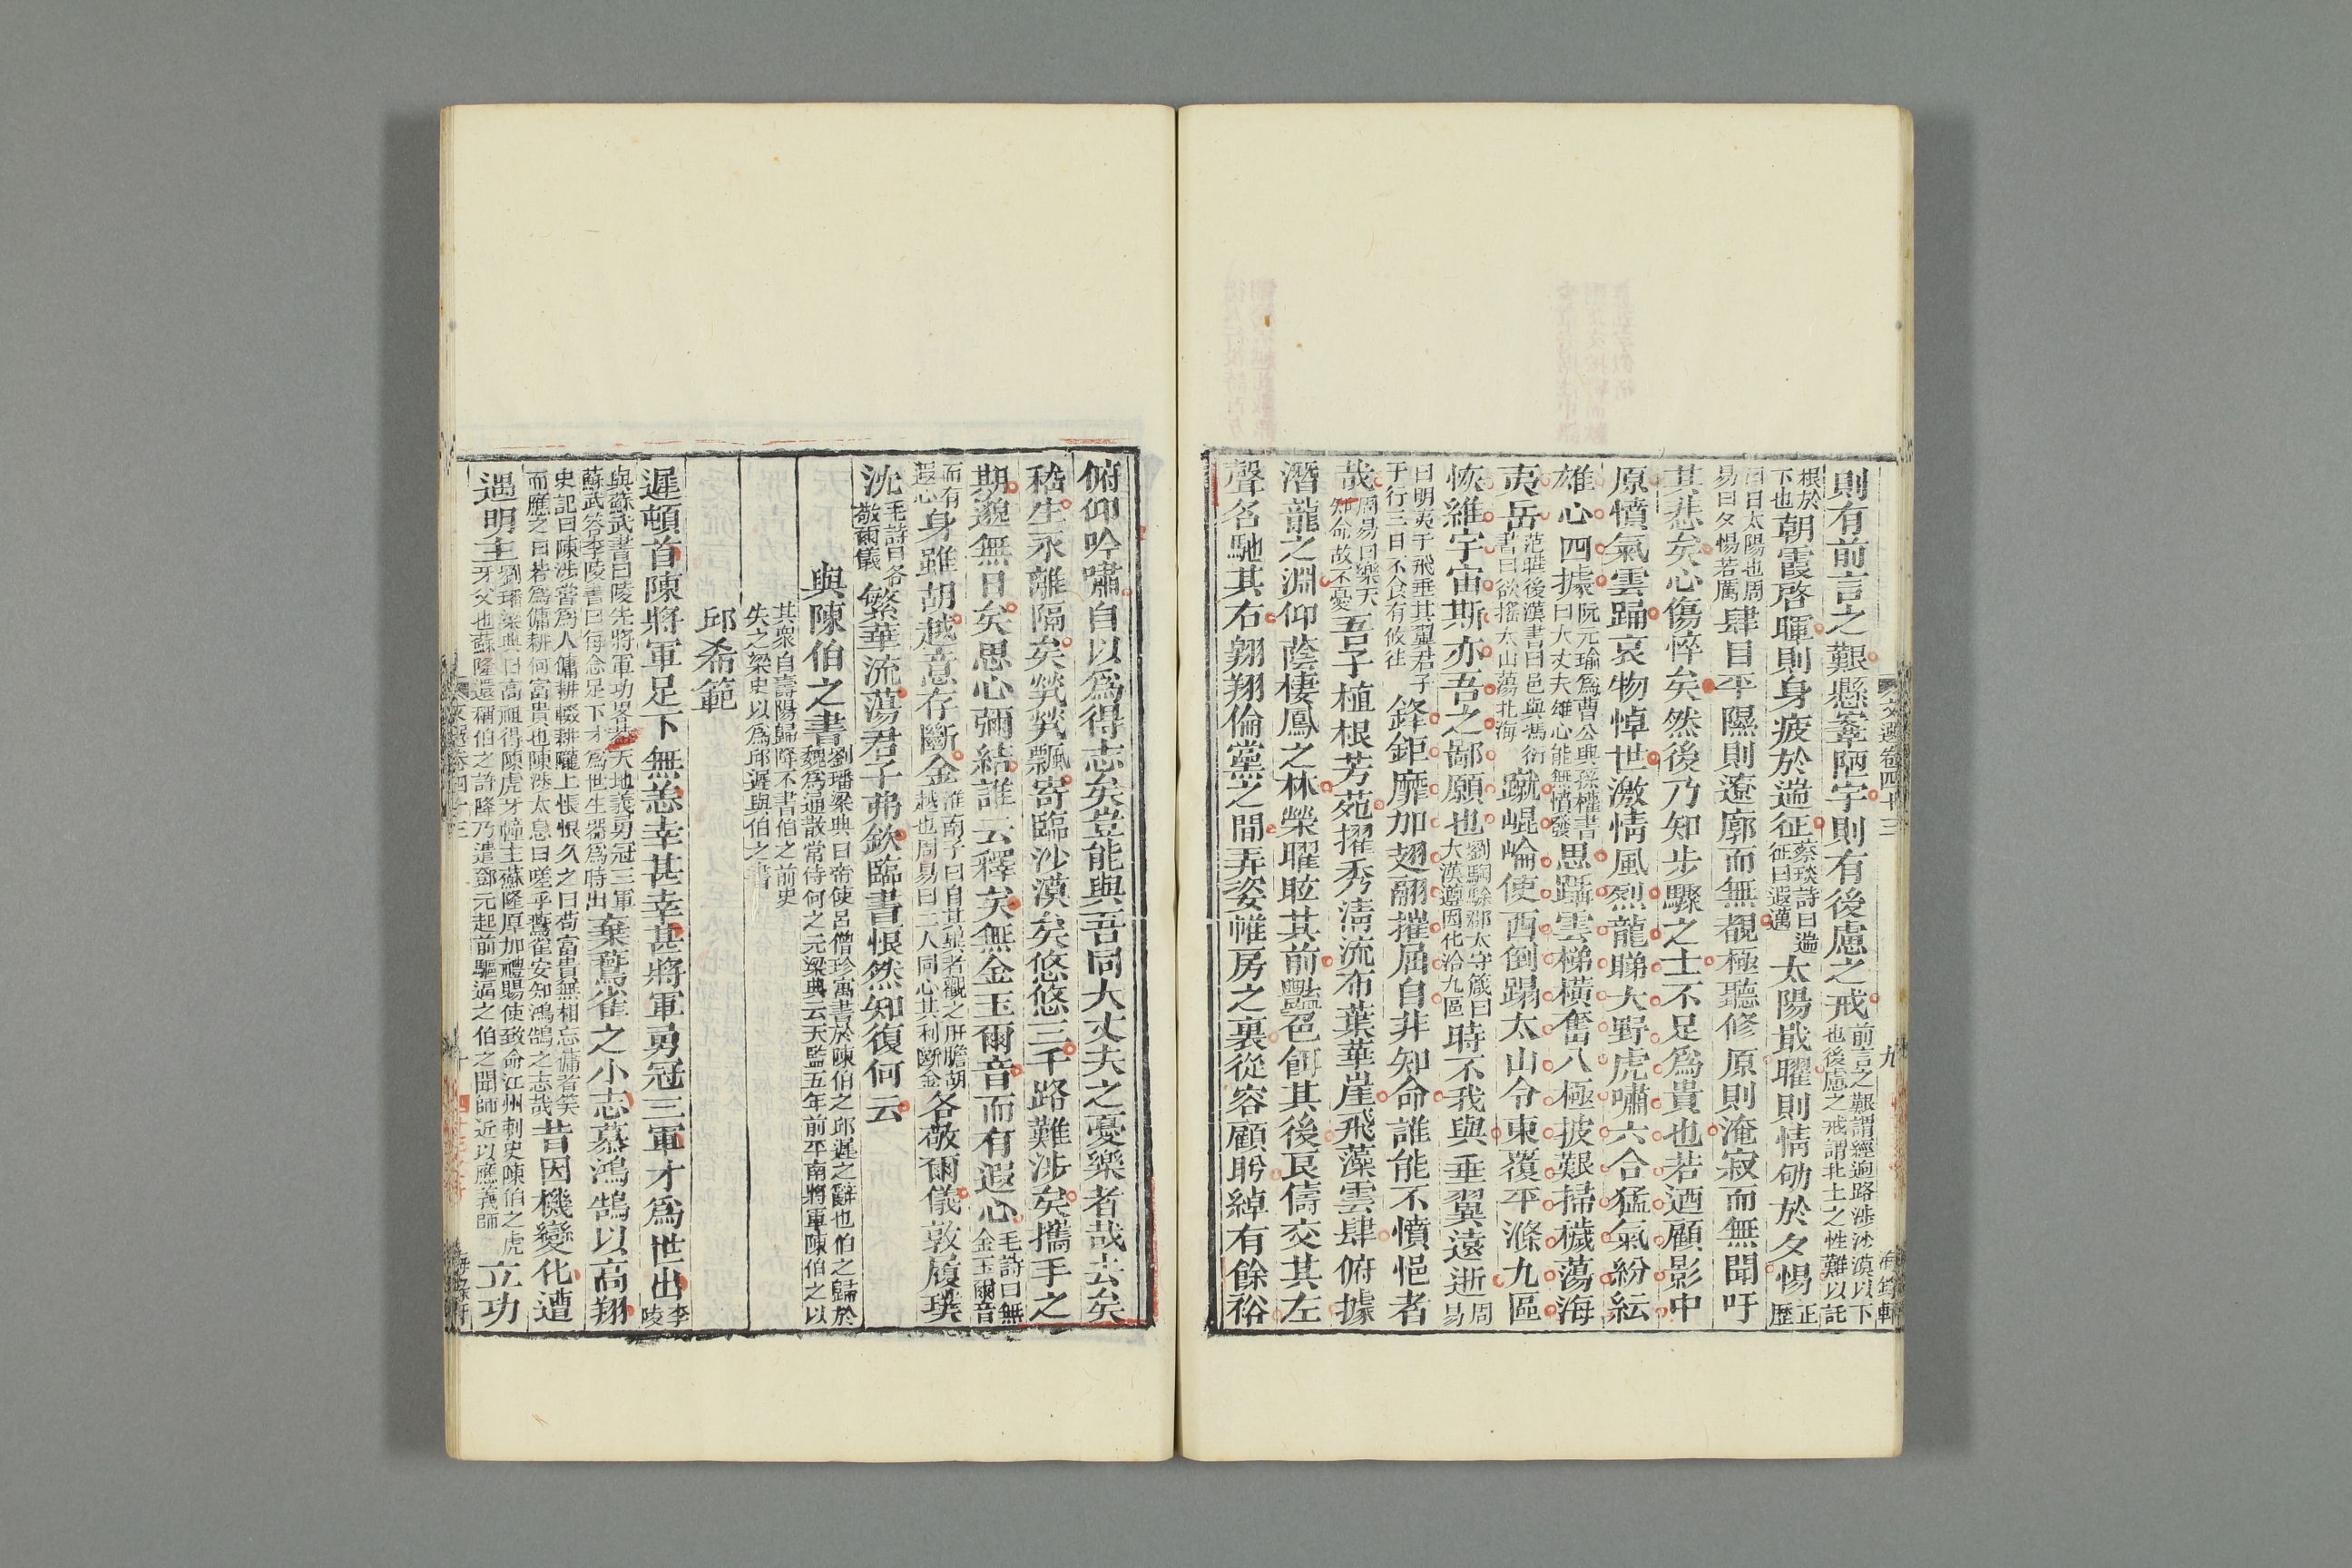 文選卷四十三 九 海錄軒
則有前言之艱懸鞌陋宇則有後慮之戒前言之艱謂經迥路涉沙漠以下也後慮之戒謂北土之性難以託
根於下也朝霞啓暉則身疲於遄征蔡琰詩曰遄征日遐邁太陽戢曜則情劬於夕惕正歷
曰日太陽也周易曰夕惕若厲肆目平隰則遼廓而無覩極聽修原則淹寂而無聞吁
其悲矣心傷悴矣然後乃知步驟之士不足爲貴也若迺顧影中
原憤氣雲踊哀物悼世激情風烈龍睇大野虎嘯六合猛氣紛紜
雄心四據阮元瑜爲曹公與孫權書曰大丈夫雄心能無憤發思躡雲梯橫奮八極披艱掃穢蕩海
夷岳范曄後漢書曰邑與馮衍書曰欲搖太山蕩北海蹴崐崘使西倒蹋太山令東覆平滌九區
恢維宇宙斯亦吾之鄙願也劉騊駼郡太守箴曰大漢遵因化洽九區時不我與垂翼遠逝周易
曰明夷于飛垂其翼君子于行三日不食有攸往鋒鉅靡加翅翮摧屈自非知命誰能不憤悒者
哉周易曰樂天知命故不憂吾子植根芳苑擢秀淸流布葉華崖飛藻雲肆俯據
潛龍之淵仰蔭棲鳳之林榮曜眩其前豔色餌其後良儔交其左
聲名馳其右翱翔倫黨之間弄姿帷房之裏從容顧眄綽有餘裕
俯仰吟嘯自以爲得志矣豈能與吾同大丈夫之憂樂者哉去矣
嵇生永離隔矣煢煢飄寄臨沙漠矣悠悠三千路難涉矣攜手之
期邈無日矣思心彌結誰云釋矣無金玉爾音而有遐心毛詩曰無金玉爾音
而有遐心身雖胡越意存斷金淮南子曰自其異者觀之肝膽胡越也周易曰二人同心其利斷金各敬爾儀敦履璞
沈毛詩曰各敬爾儀繁華流蕩君子弗欽臨書悢然知復何云
與陳伯之書劉璠梁典曰帝使呂僧珍寓書於陳伯之邱遲之辭也伯之歸於魏爲通散常侍何之元梁典云天監五年前平南將軍陳伯之以
其衆自壽陽歸降不書伯之前史失之梁史以爲邱遲與伯之書
邱希範
遲頓首陳將軍足下無恙幸甚幸甚將軍勇冠三軍才爲世出李陵
與蘇武書曰陵先將軍功畧蓋天地義勇冠三軍蘇武答李陵書曰每念足下才爲世生器爲時出棄鷰雀之小志慕鴻鵠以高翔
史記曰陳涉嘗爲人傭耕輟耕隴上悵恨久之曰苟富貴無相忘傭者笑而應之曰若爲傭耕何富貴也陳涉太息曰嗟乎鷰雀安知鴻鵠之志哉昔因機變化遭
遇明主劉璠梁典曰高祖得陳虎牙幢主蘇隆原加禮賜使致命江州刺史陳伯之虎牙父也蘇隆還稱伯之許降乃遣鄧元起前驅逼之伯之聞師近以應義師立功
文選卷四十三 十 海錄軒